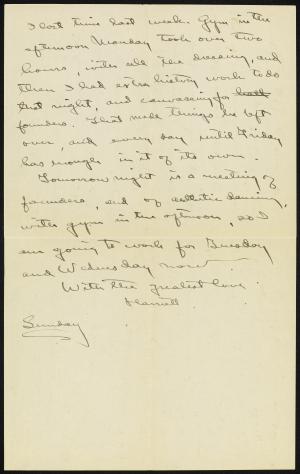 I lost time last week. Gym in the
afternoon Monday took over two
hours, with all the dressing, and
then I had extra history work to do
that night, and canvassing for
founders. That made things be left
over, and every day until Friday
has enough in it of its own.
Tomorrow night is a meeting of
founders, and of aesthetic dancing,
with gym in the afternoon, so I
am going to work for Tuesday
and Wednesday now.
With the greatest love.
Sunday